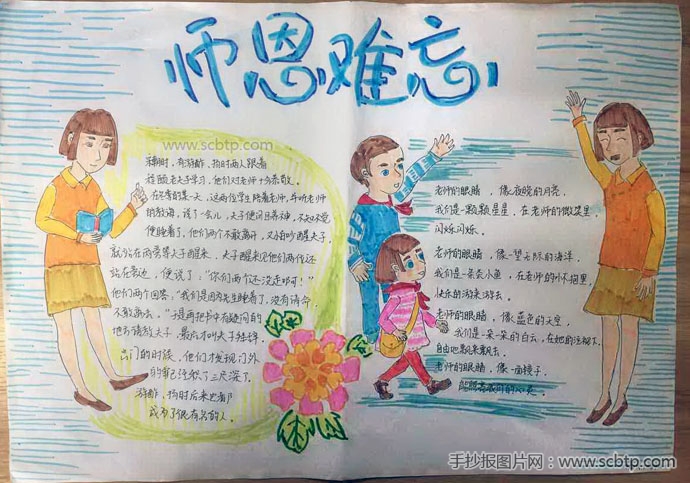 师恩难忘
www.scbtp.com
宋朝时，有游酢、杨时两人跟着
程颐老夫子学习，他们对老师十分恭敬。
在冬季的一天，这两位学生陪着老师，聆听老师
的教诲，谈了一会儿，夫子便闭目养神，不知不觉
便睡着了，他们两个不敢离开，又怕吵醒夫子，
就站在两旁等夫子醒来。夫子醒来见他们两位还
站在旁边，便说了："你们两个还没走呀！"
他们两个回答："我们是因为先生睡着了，没有请命，
不敢离去。"于是再把书中有疑问的
地方请教夫子，最后才叫夫子告辞。
出门的时候，他们才发现门外
的雪已经积了三尺深了。
游酢、杨时后来也都
成为了很有名的人。
老师的眼睛，像夜晚的月亮，
我们是一颗颗星星，在老师的微笑里，
闪烁闪烁。
老师的眼睛，像一望无际的海洋，
我们是一条条小鱼，在老师的怀抱里，
快乐的游来游去。
老师的眼睛，像蓝色的天空，
我们是一朵一朵的白云，在她的注视下，
自由地飘来飘去。
老师的眼睛，像一面镜子，
能照亮我们的心灵。
手抄报图片网：www.scbtp.com